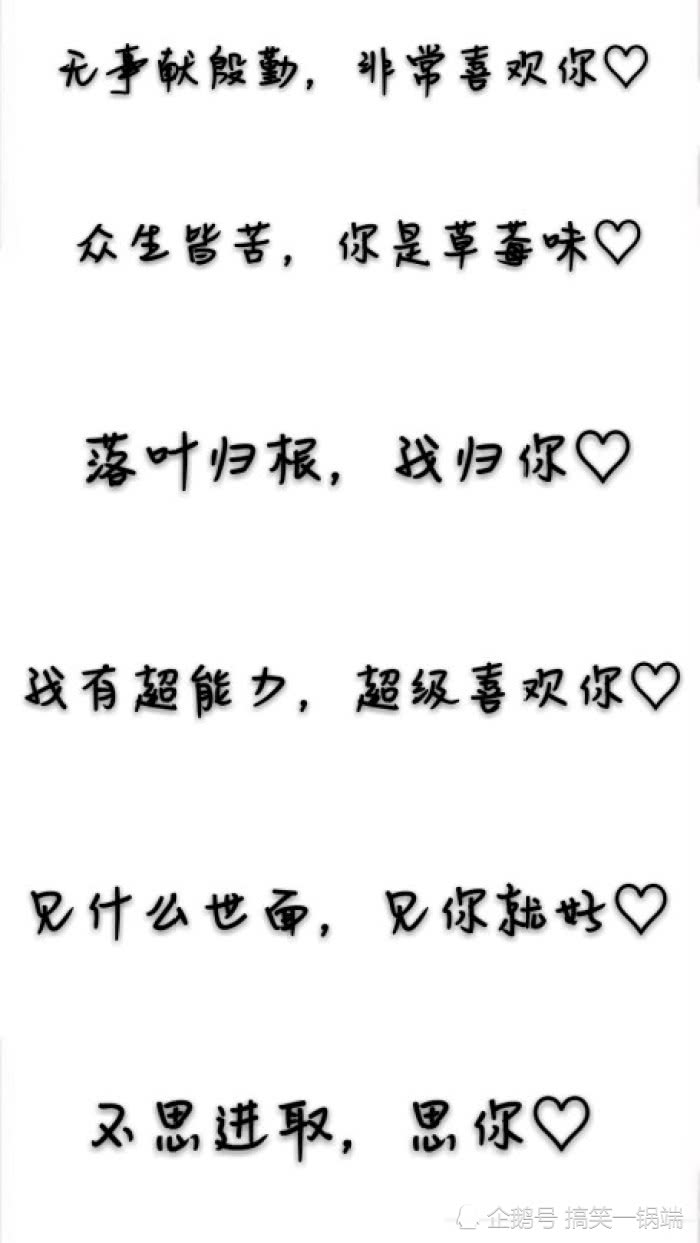 无事献殷勤，非常喜欢你♡
众生皆苦，你是草莓味♡
落叶归根，我归你♡
我有超能力，超级喜欢你♡
见什么世面，见你就好♡
不思进取，思你♡
企鹅号 搞笑一锅端